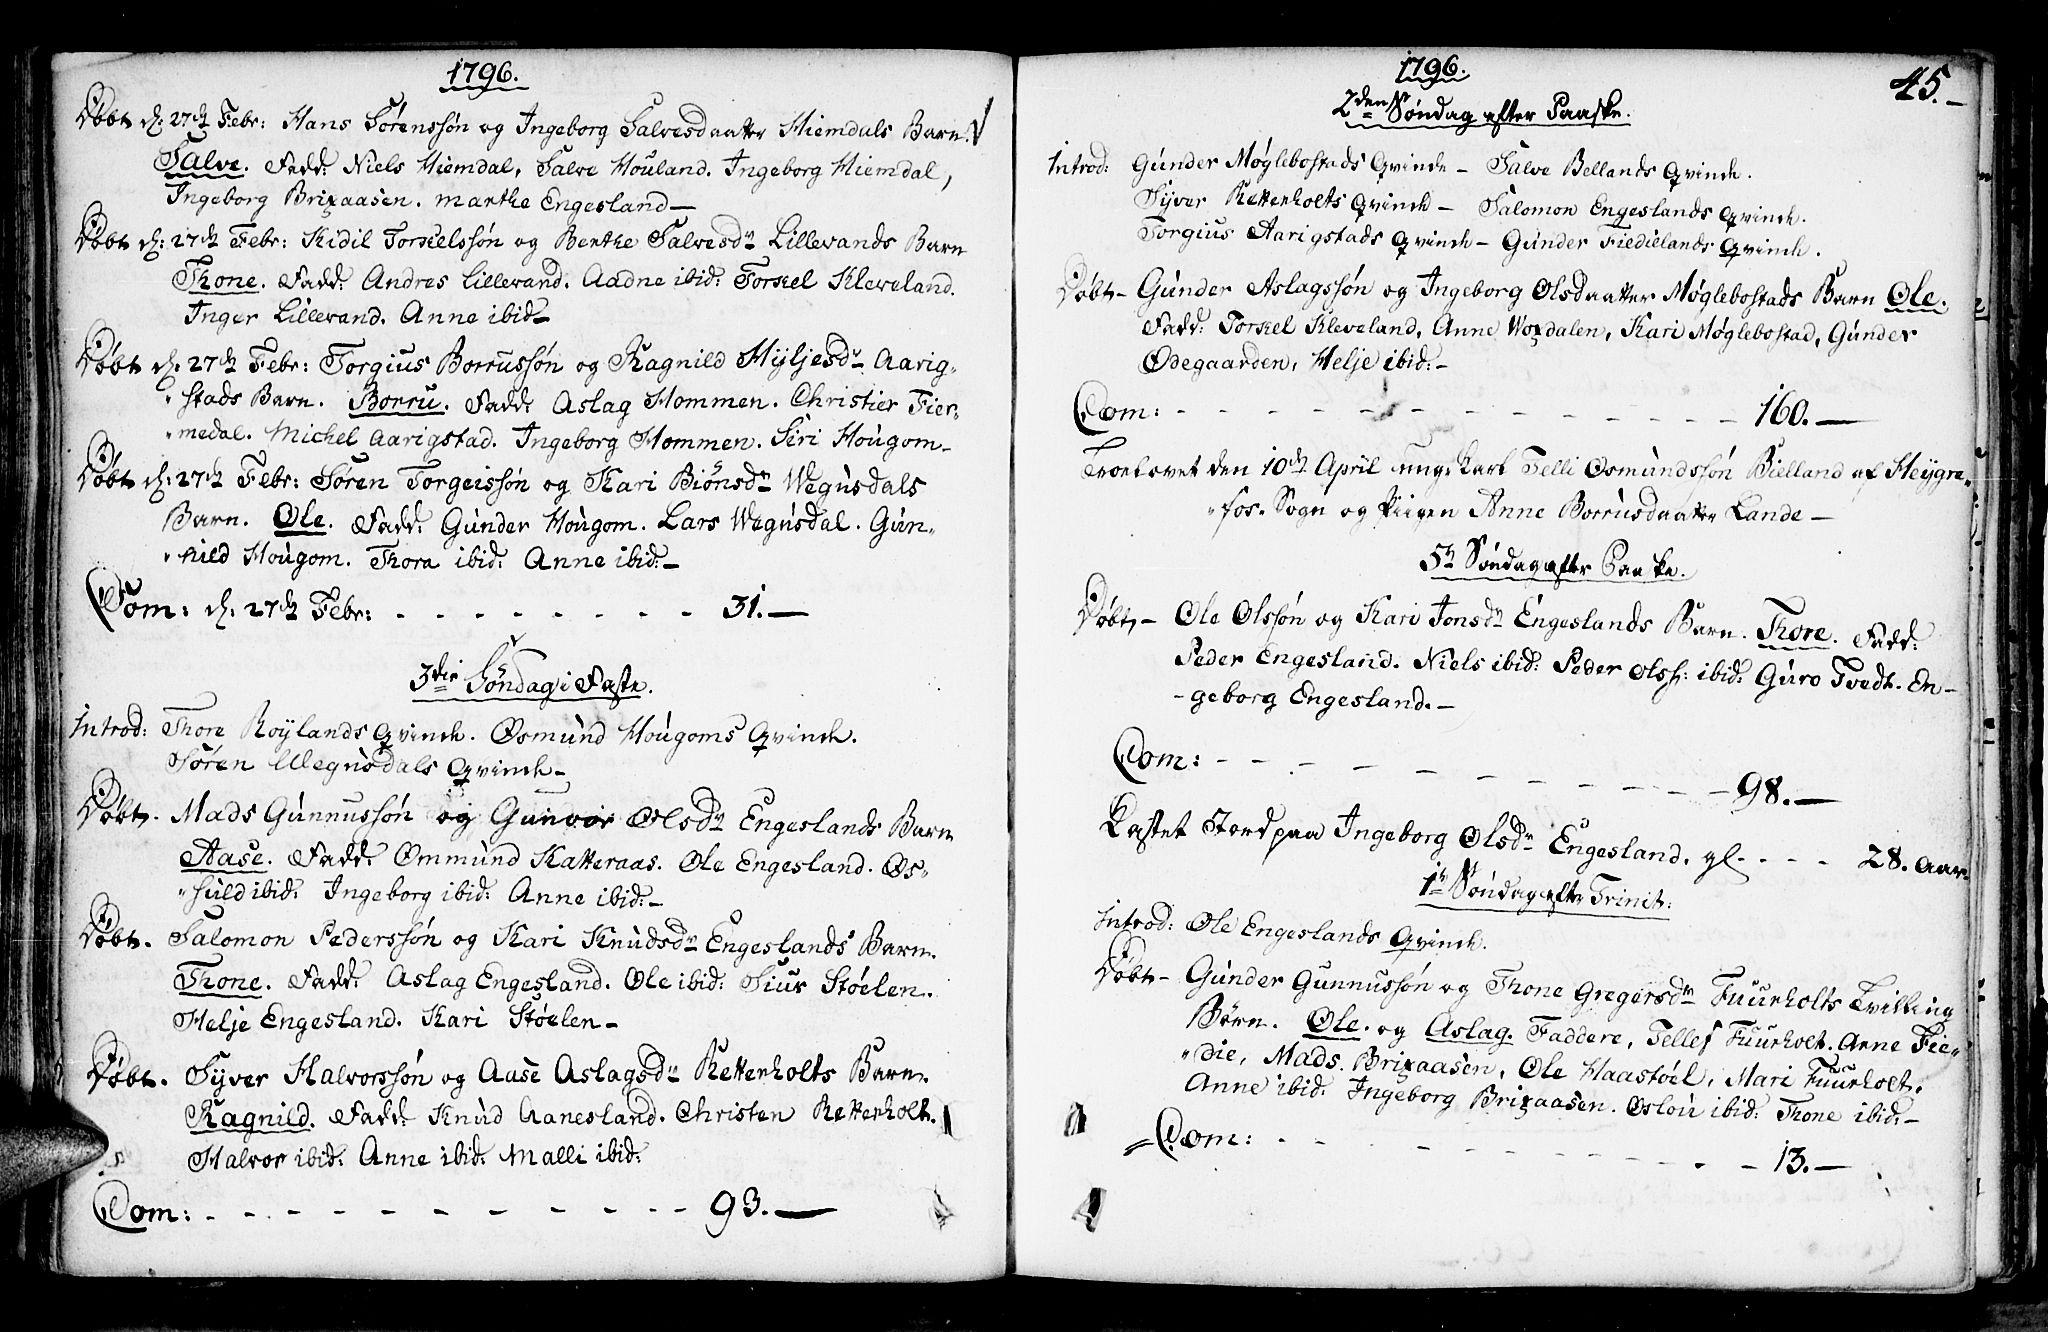 1796.
Døbt d: 27de Febr: Hans Sørenssøn og Ingeborg Salvesdaatter Hiemdals Barn.
Salve. Fadd: Niels Hiemdal, Salve Houland. Ingeborg Hiemdal,
Ingeborg Brixaasen. Marthe Engesland—
Døbt d: 27de Febr: Kidil Torkelssøn og Berthe Salvesdr Lillevands Barn
Thone. Fadd: Andres Lillevand. Aadne ibid: Torkel Kleveland.
Inger Lillevand. Anne ibid—
Døbt d: 27de Febr: Torgius Borrussøn og Ragnild Hyljesdr Aarig-
stads Barn. Borru. Fadd: Aslag Hommen. Christier Fier-
medal. Michel Aarigstad. Ingeborg Hommen. Siri Hougom—
Døbt d: 27de Febr: Søren Torgeissøn og Kari Biønsdr Wegusdals
Barn. Ole. Fadd: Gunder Hougom. Lars Wegusdal. Gun-
hild Hougom. Thora ibid: Anne ibid:—
Com: d: 27de Febr: - - - - - - - - 31.—
3die Søndag i Faste.
Introd: Thore Røylands Qvinde. Osmund Hougoms Qvinde.
Søren Wegusdals Qvinde—
Døbt. Mads Gunnussøn og Gunvor Olsdr Engeslands Barn
Aase. Fadd: Ommund Katteraas. Ole Engesland. Os-
huld ibid: Ingeborg ibid: Anne ibid:—
Døbt. Salomon Pederssøn og Kari Knudsdr Engeslands Barn.
Thone. Fadd: Aslag Engesland. Ole ibid: Siur Støelen.
Helje Engesland. Kari Støelen—
Døbt. Syver Halvorssøn og Aase Aslagsdr Retterholts Barn.
Ragnild. Fadd: Knud Aanesland. Christen Retterholt.
Halvor ibid: Anne ibid: Malli ibid:
Com: - - - - - - - - - - - - 93.—
1796. 45.—
2den Søndag efter Paaske.
Introd: Gunder Møglebostads Qvinde — Salve Bellands Qvinde.
Syver Retterholts Qvinde — Salomon Engeslands Qvinde.
Torgius Aarigstads Qvinde — Gunder Fiedielands Qvinde.
Døbt— Gunder Aslagssøn og Ingeborg Olsdaatter Møglebostads Barn Ole.
Fadd: Torkel Kleveland, Anne Woxdalen, Kari Møglebostad, Gunder
Ødegaarden, Helje ibid:—
Com: - - - - - - - - - - - - - 160.—
Troelovet den 10de April unge Karl Telli Osmundssøn Bielland af Heygre-
fos- Sogn og Piigen Anne Borrusdaatter Lande—
5te Søndag efter Paaske.
Døbt,— Ole Olssøn og Kari Jonsdr Engeslands Barn. Thore. Fadd:
Peder Engesland. Niels ibid: Peder Olss: ibid: Guro Tvedt. En-
geborg Engesland.—
Com: - - - - - - - - - - - - 98.—
Kastet Jord paa Ingeborg Olsdr Engesland. gl. - - - - 28. Aar.
1te Søndag efter Trinit:
Introd: Ole Engeslands Qvinde.
Døbt— Gunder Gunnussøn og Thone Gregersdtr Fuurholts Tvilling
Børn. Ole. og Aslag. Faddere, Tellef Fuurholt. Anne Fie-
die, Mads Brixaasen, Ole Haastøel, Mari Fuurholt.
Anne ibid: Ingeborg Brixaasen. Oslou ibid: Thone ibid:—
Com: - - - - - - - - - 13.—